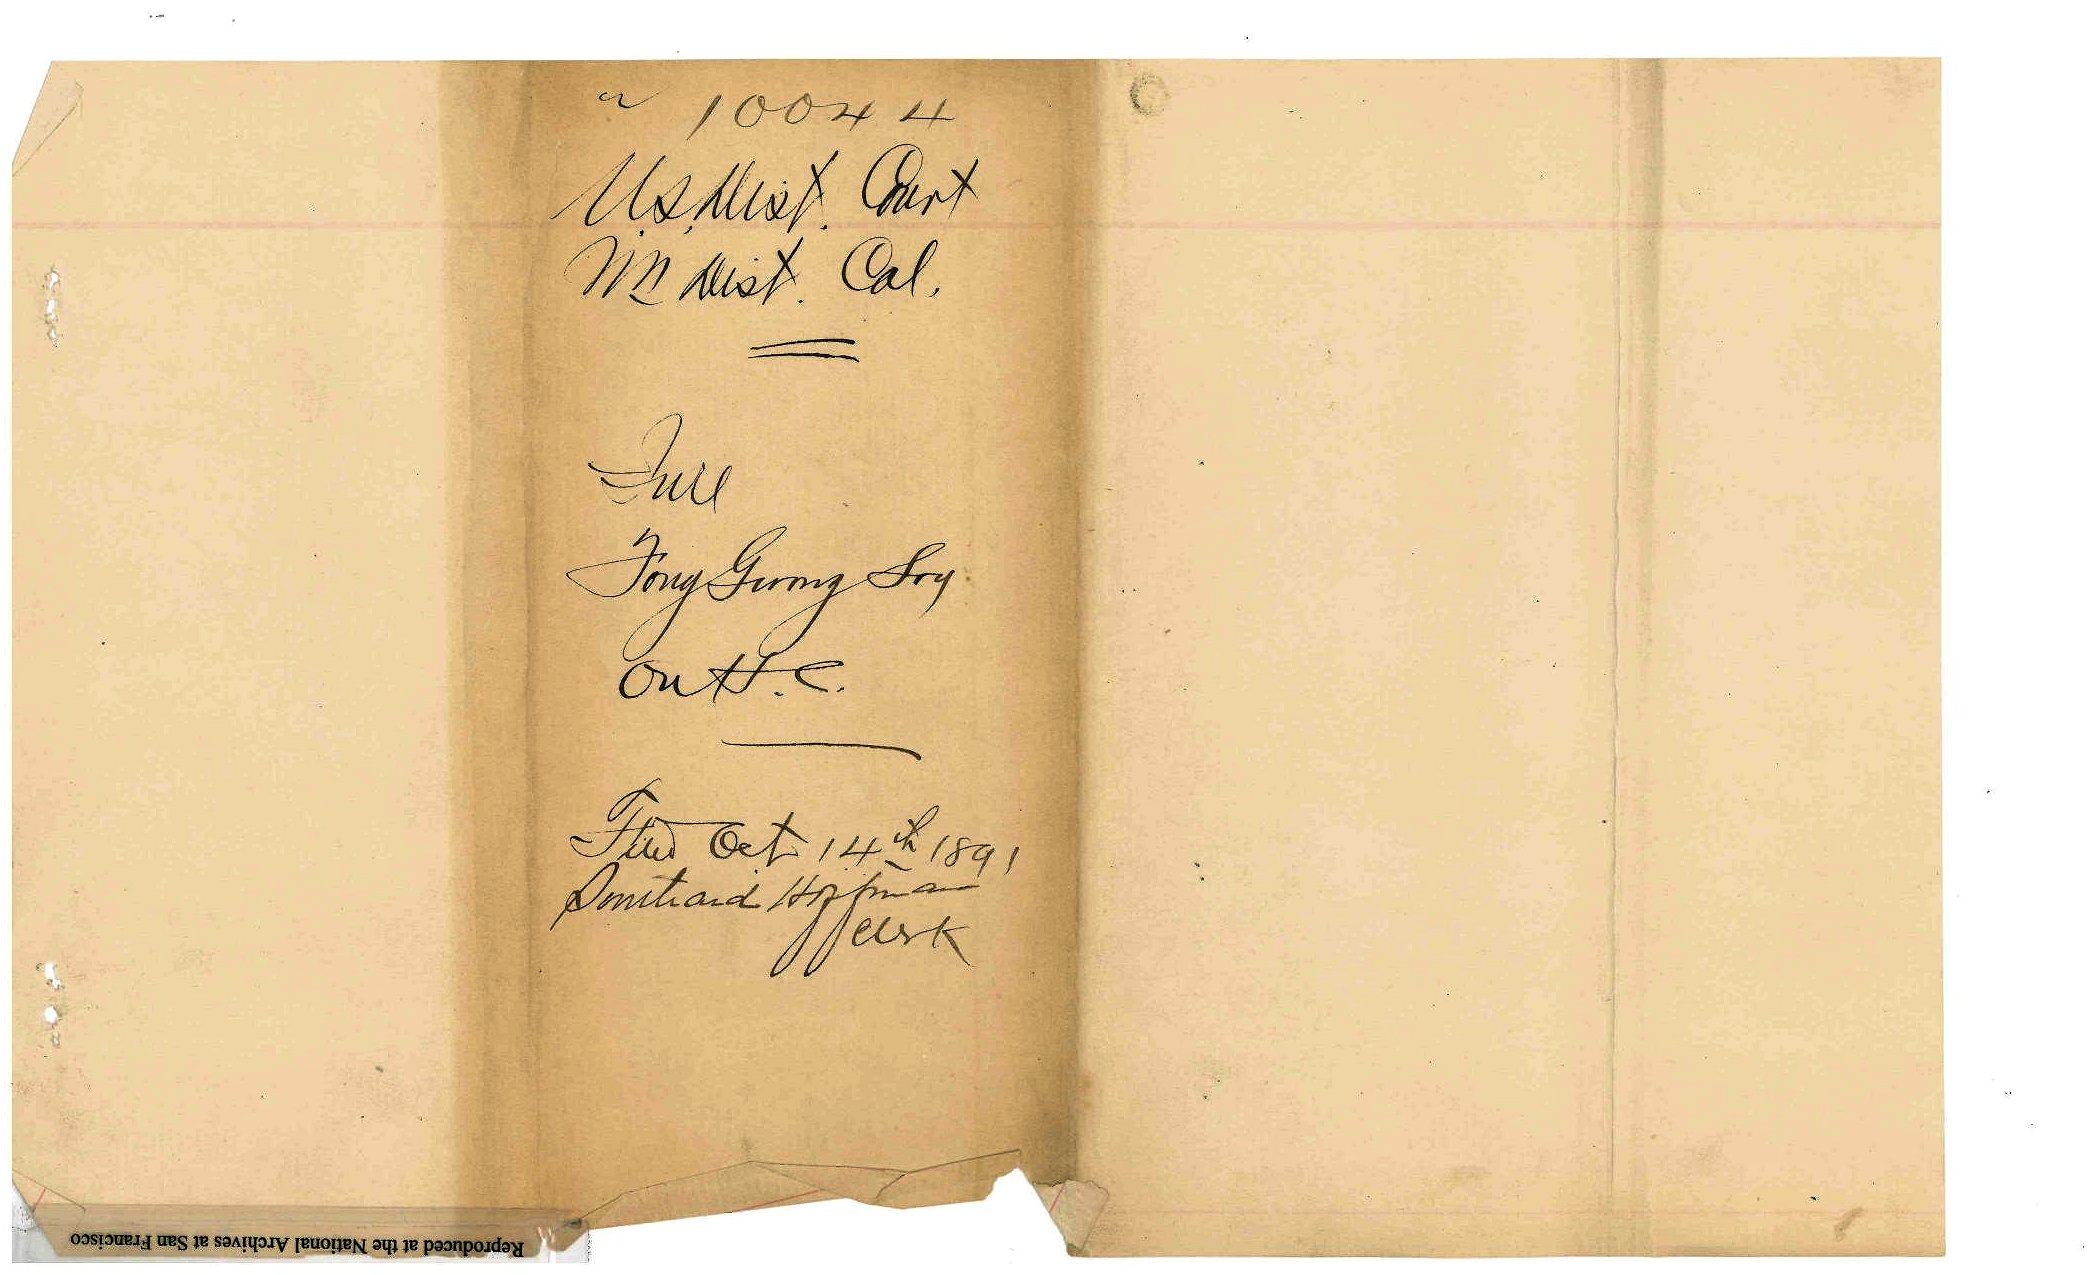 10044
U.S. Dist. Court
Nn Dist. Cal.
In re
Fong Gwong Soy
On H.C.
Filed Oct 14th 1891
Southard Hoffman
Clerk
Reproduced at the National Archives at San Francisco